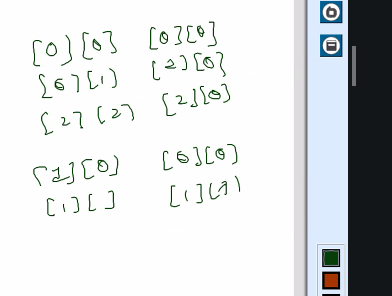 [0][0] [0][0]
[0][1] [1][0]
[2][2] [2][0]
[1][0] [0][0]
[1][ ] [1][1]